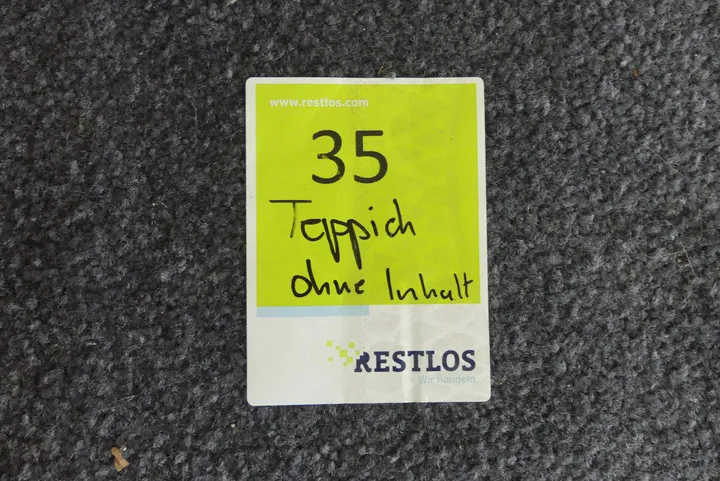 www.restlos.com
35
Teppich
ohne Inhalt
RESTLOS
Wir handeln.